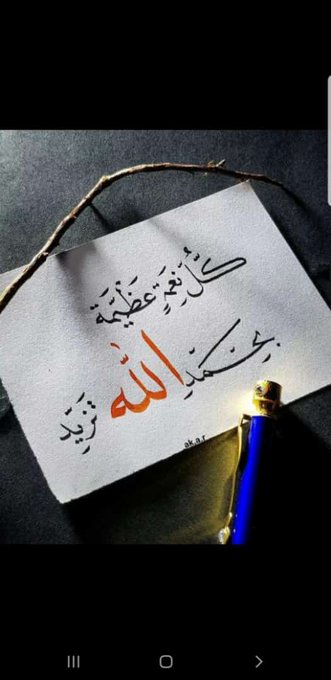 كُلُّ نِعْمَةٍ عَظِيْمَة
بِحَمْدِ اللّٰه تَزِيْد
ak.a.r